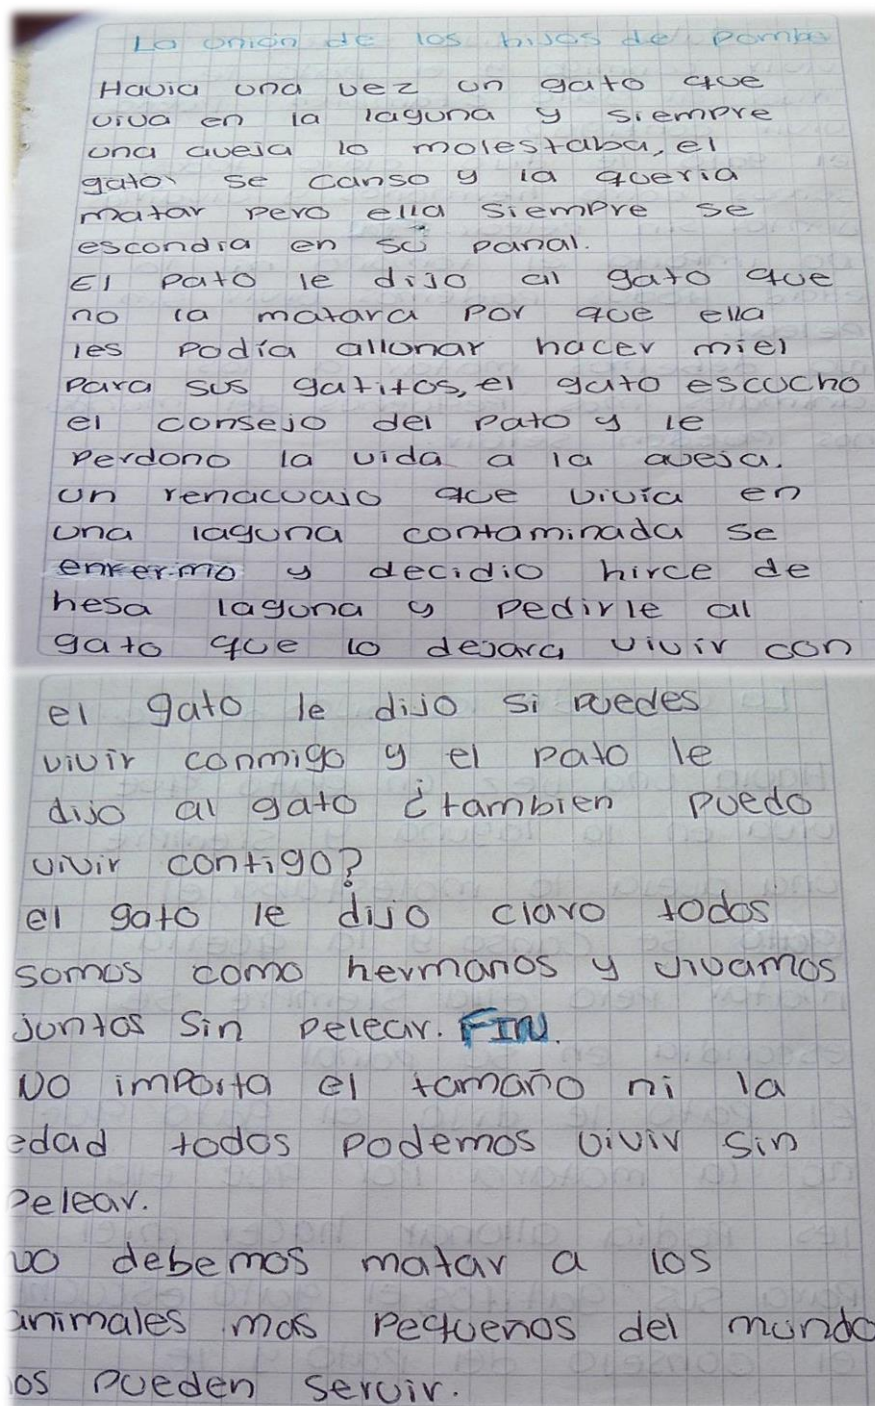 La union de los hijos de Pombo
Havia una vez un gato que
viva en la laguna y siempre
una aveja lo molestaba, el
gato se canso y la queria
matar pero ella siempre se
escondia en su panal.
El pato le dijo al gato que
no la matara por que ella
les podía allunar hacer miel
para sus gatitos, el gato escucho
el consejo del pato y le
perdono la vida a la aveja.
un renacuajo que vivía en
una laguna contaminada se
enfermo y decidio hirce de
hesa laguna y pedirle al
gato que lo dejara vivir con
el gato le dijo si puedes
vivir conmigo y el pato le
dijo al gato ¿tambien puedo
vivir contigo?
el gato le dijo claro todos
somos como hermanos y vivamos
juntos sin pelear. FIN.
No importa el tamaño ni la
edad todos podemos vivir sin
pelear.
No debemos matar a los
animales mas pequeños del mundo
nos pueden servir.